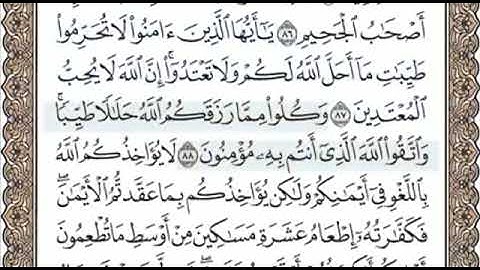 أَصْحَٰبُ ٱلْجَحِيمِ ٨٦ يَٰٓأَيُّهَا ٱلَّذِينَ ءَامَنُوا۟ لَا تُحَرِّمُوا۟
طَيِّبَٰتِ مَآ أَحَلَّ ٱللَّهُ لَكُمْ وَلَا تَعْتَدُوٓا۟ۚ إِنَّ ٱللَّهَ لَا يُحِبُّ
ٱلْمُعْتَدِينَ ٨٧ وَكُلُوا۟ مِمَّا رَزَقَكُمُ ٱللَّهُ حَلَٰلًا طَيِّبًاۚ
وَٱتَّقُوا۟ ٱللَّهَ ٱلَّذِىٓ أَنتُم بِهِۦ مُؤْمِنُونَ ٨٨ لَا يُؤَاخِذُكُمُ ٱللَّهُ
بِٱللَّغْوِ فِىٓ أَيْمَٰنِكُمْ وَلَٰكِن يُؤَاخِذُكُم بِمَا عَقَّدتُّمُ ٱلْأَيْمَٰنَۖ
فَكَفَّٰرَتُهُۥٓ إِطْعَامُ عَشَرَةِ مَسَٰكِينَ مِنْ أَوْسَطِ مَا تُطْعِمُونَ